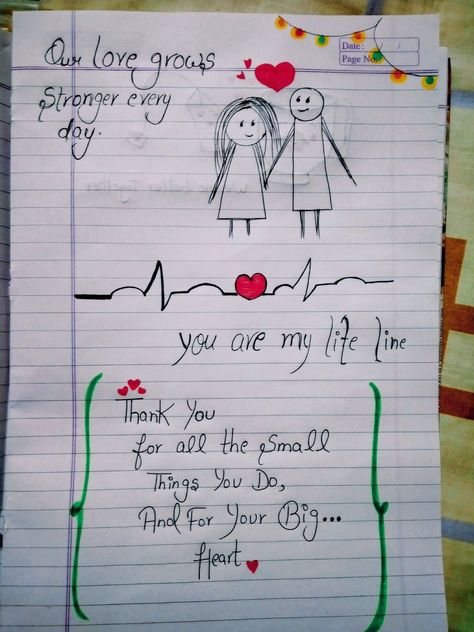 Our love grows
Stronger every
day.
Date: / /
Page No.
you are my life line
Thank You
for all the Small
Things You Do,
And For Your Big...
Heart